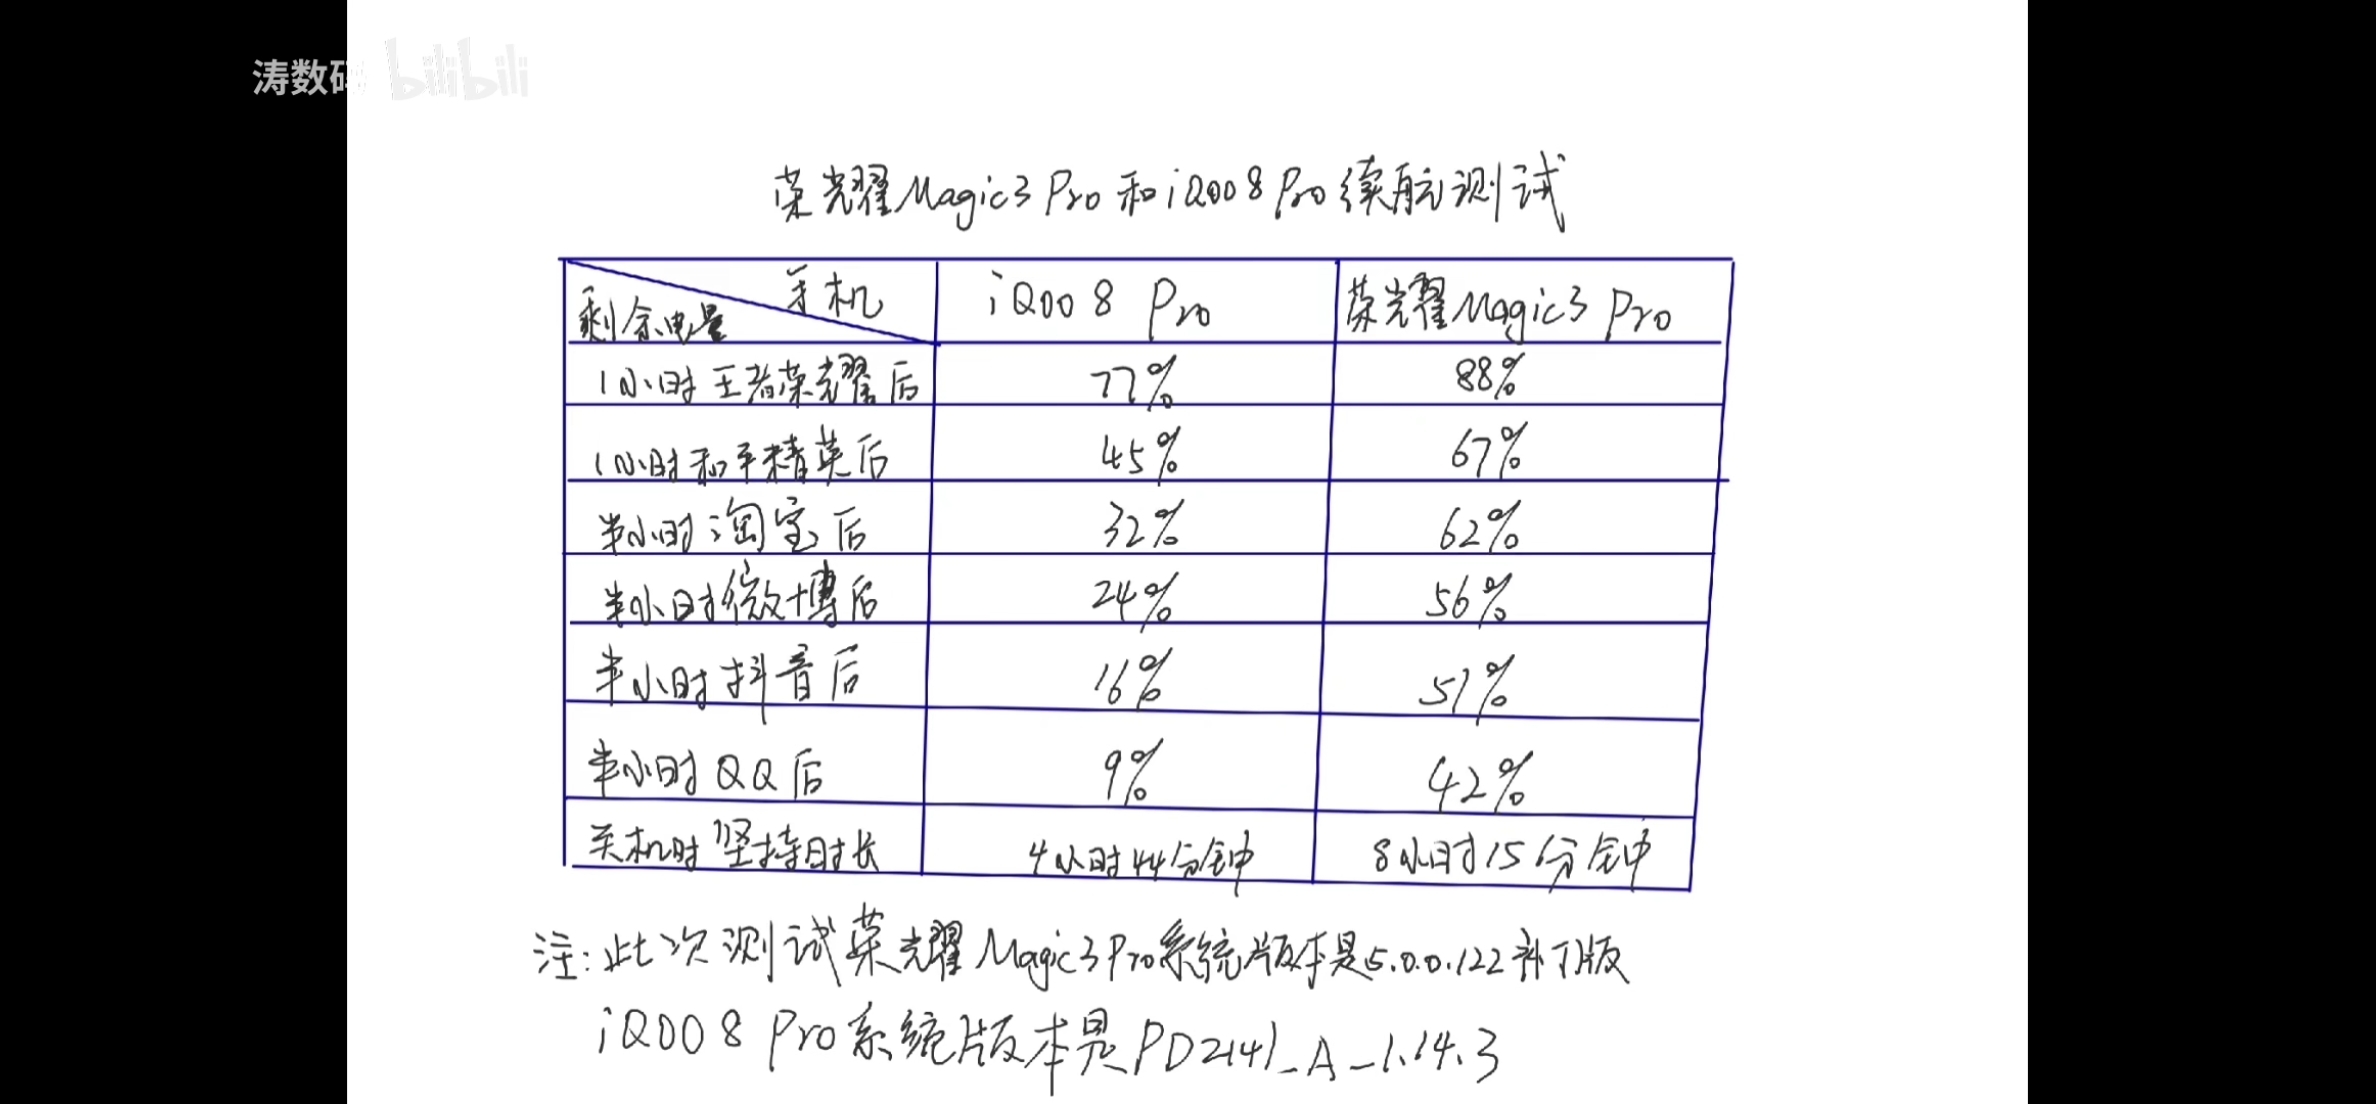 涛数码 bilibili
荣耀Magic3 Pro和iQOO8 Pro续航测试
手机 iQOO 8 Pro 荣耀Magic3 Pro
剩余电量
1小时王者荣耀后 77% 88%
1小时和平精英后 45% 67%
半小时淘宝后 32% 62%
半小时微博后 24% 56%
半小时抖音后 16% 51%
半小时QQ后 9% 42%
关机时坚持时长 4小时44分钟 8小时15分钟
注:此次测试荣耀Magic3Pro系统版本是5.0.0.122补丁版
iQOO 8 Pro系统版本是PD2141_A_1.14.3